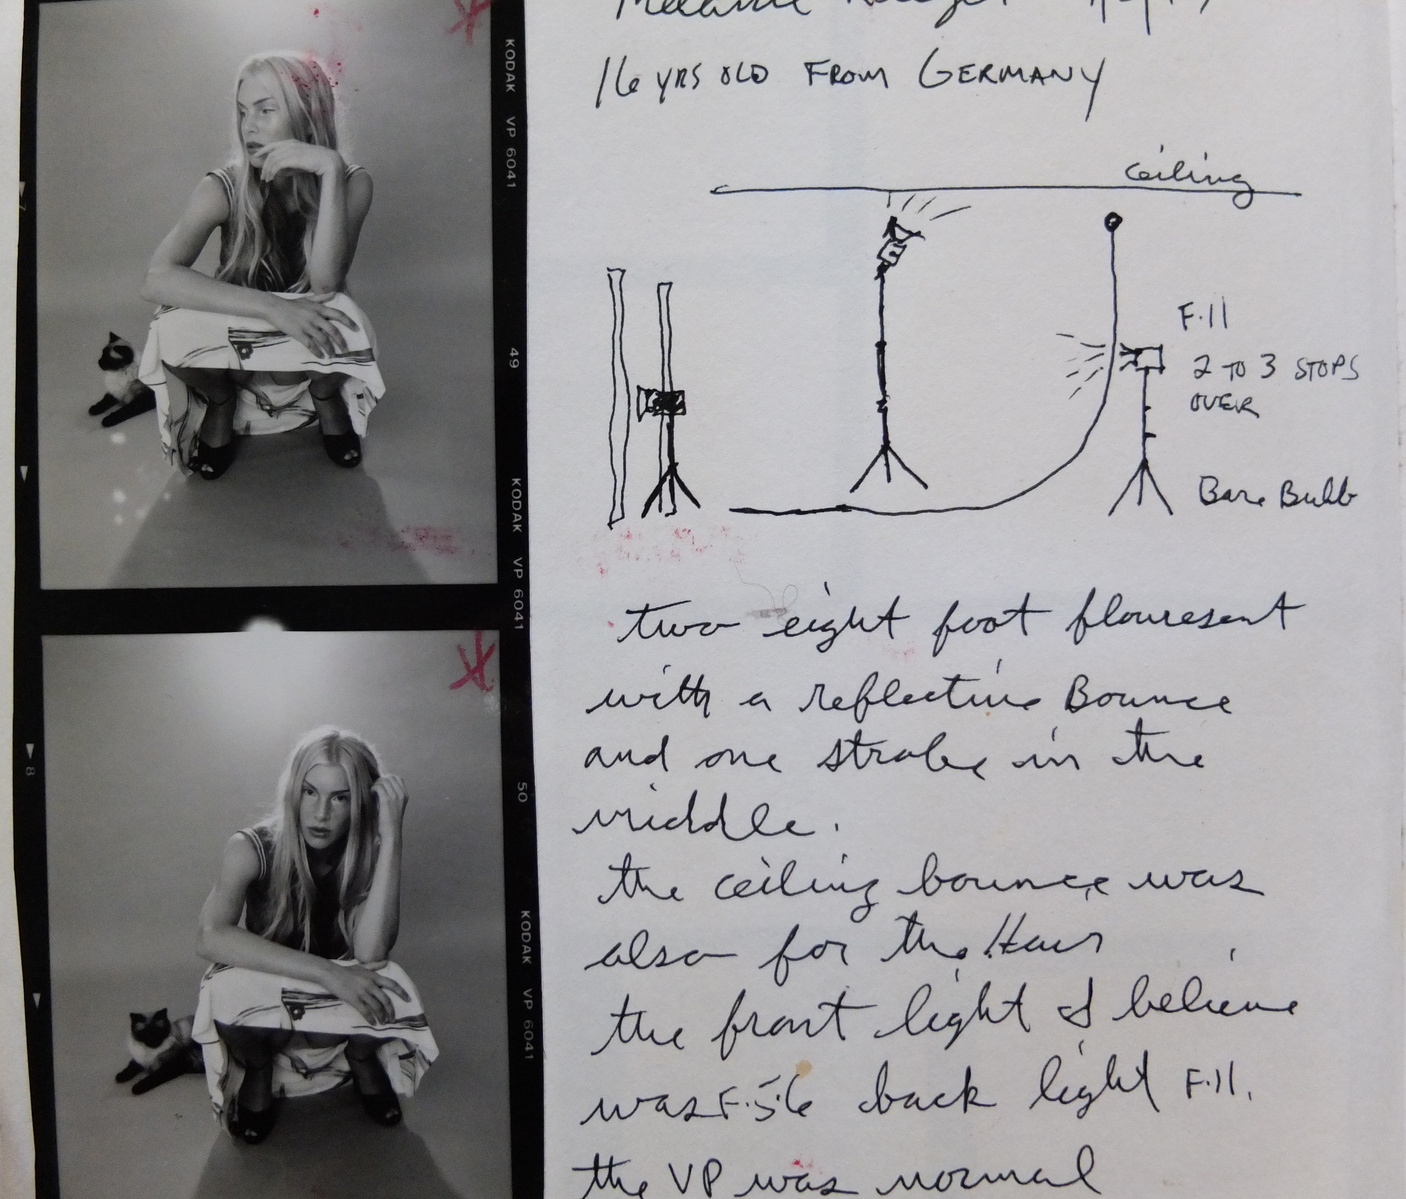 Melanie
16 YRS OLD FROM GERMANY
Ceiling
F.11
2 TO 3 STOPS
OVER
Bare Bulb
two eight foot flouresent
with a reflective Bounce
and one strobe in the
middle.
the ceiling bounce was
also for the Hair
the front light I believe
was F.5.6 back light F.11.
the VP was normal
KODAK VP 6041
49
KODAK VP 6041
50
KODAK VP 6041
8